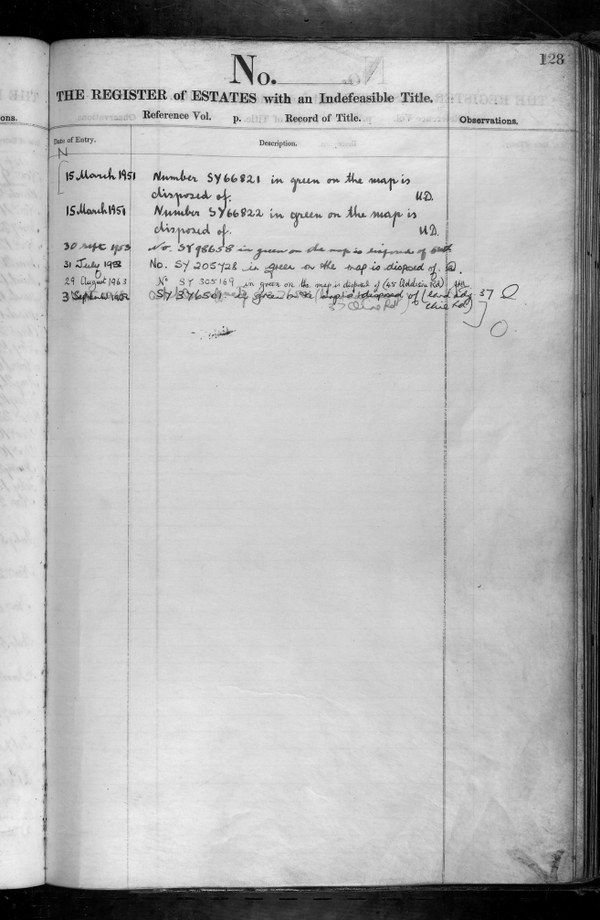 128
No.
THE REGISTER of ESTATES with an Indefeasible Title.
ons.
Reference Vol. p. Record of Title.
Observations.
Date of Entry.
Description.
N
15 March 1951 Number SY66821 in green on the map is
disposed of. U.D.
15 March 1951 Number SY66822 in green on the map is
disposed of. U.D.
30 Sept 1953 No. SY98658 in green on the map is disposed of
31 July 1958 No. SY 205728 in green on the map is disposed of.
29 August 1963 No SY 305169 in green on the map is disposed of (45 Rd)
3 September SY 346501 in green on the disposed of (land adjg 37
37 Rd) Rd)